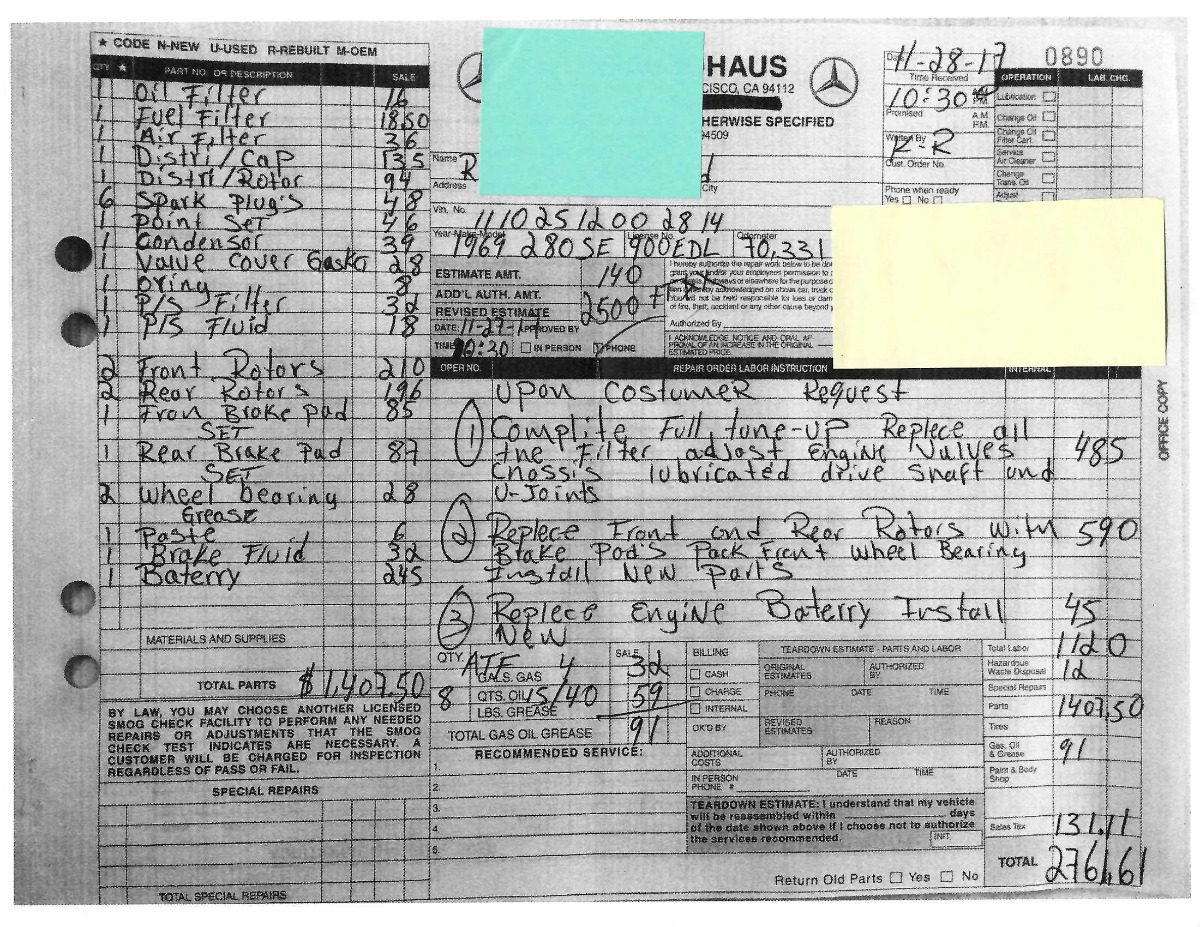 ★ CODE N-NEW U-USED R-REBUILT M-OEM
QTY ★ PART NO. OR DESCRIPTION SALE
1 Oil Filter 16
1 Fuel Filter 1850
1 Air Filter 36
1 Distri/Cap 135
1 Distri/Rotor 94
6 Spark Plug's 48
1 Point Set 46
1 Condensor 39
1 Value cover Gasket 28
1 Oring 8
1 P/S Filter 32
1 P/S Fluid 18
2 Front Rotors 210
2 Rear Rotors 196
1 Fron Broke Pad 85
SET
1 Rear Brake Pad 87
SET
2 Wheel bearing 28
Grease
1 Paste 6
1 Brake Fluid 32
1 Baterry 245
MATERIALS AND SUPPLIES
TOTAL PARTS $1,407.50
BY LAW, YOU MAY CHOOSE ANOTHER LICENSED
SMOG CHECK FACILITY TO PERFORM ANY NEEDED
REPAIRS OR ADJUSTMENTS THAT THE SMOG
CHECK TEST INDICATES ARE NECESSARY. A
CUSTOMER WILL BE CHARGED FOR INSPECTION
REGARDLESS OF PASS OR FAIL.
SPECIAL REPAIRS
TOTAL SPECIAL REPAIRS
HAUS
CISCO, CA 94112
HERWISE SPECIFIED
94509
Name R d
Address City
Vin. No. 11102512002814
Year-Make-Model License No. Odometer
1969 280SE 900EDL 70,331
ESTIMATE AMT. 140
ADD'L AUTH. AMT.
REVISED ESTIMATE 2500
DATE: 11-27-17 APPROVED BY
TIME 10:30 IN PERSON PHONE
I hereby authorize the repair work below to be
grant you and/or your employees permission to
of fire, theft, accident or any other cause beyond
Authorized By
I ACKNOWLEDGE NOTICE AND ORAL AP-
PROVAL OF AN INCREASE IN THE ORIGINAL
ESTIMATED PRICE.
Date 11-28-17
Time Received
10:30 A.M. P.M.
Promised A.M. P.M.
Written By K-R
Cust. Order No.
Phone when ready
Yes No
0890
OPERATION LAB. CHG.
Lubrication
Change Oil
Change Oil
Filter Cart.
Service
Air Cleaner
Change
Trans. Oil
Adjust
OPER NO. REPAIR ORDER LABOR INSTRUCTION INTERNAL
Upon Costumer Request
1 Complite Full tune-up Replece all
the Filter adjost Engine Valves 485
Chossis lubricated drive Shaft and
U-Joints
2 Replece Front and Rear Rotors with 590
Brake Pad's Pack Front Wheel Bearing
Install New Parts
3 Replece Engine Baterry Install 45
New
QTY. SALE
ATF 4 GALS. GAS 32
8 QTS. OIL 15/40 59
LBS. GREASE
TOTAL GAS OIL GREASE 91
RECOMMENDED SERVICE:
1.
2.
3.
4.
5.
BILLING
CASH
CHARGE
INTERNAL
OK'D BY
TEARDOWN ESTIMATE - PARTS AND LABOR
ORIGINAL ESTIMATES AUTHORIZED BY
PHONE DATE TIME
REVISED ESTIMATES REASON
ADDITIONAL COSTS AUTHORIZED BY
IN PERSON DATE TIME
PHONE #
TEARDOWN ESTIMATE: I understand that my vehicle
will be reassembled within days
of the date shown above if I choose not to authorize
the services recommended. INIT.
Return Old Parts Yes No
Total Labor 1120
Hazardous Waste Disposal 12
Special Repairs
Parts 1407.50
Tires
Gas, Oil & Grease 91
Paint & Body Shop
Sales Tax 131.11
TOTAL 2761.61
OFFICE COPY